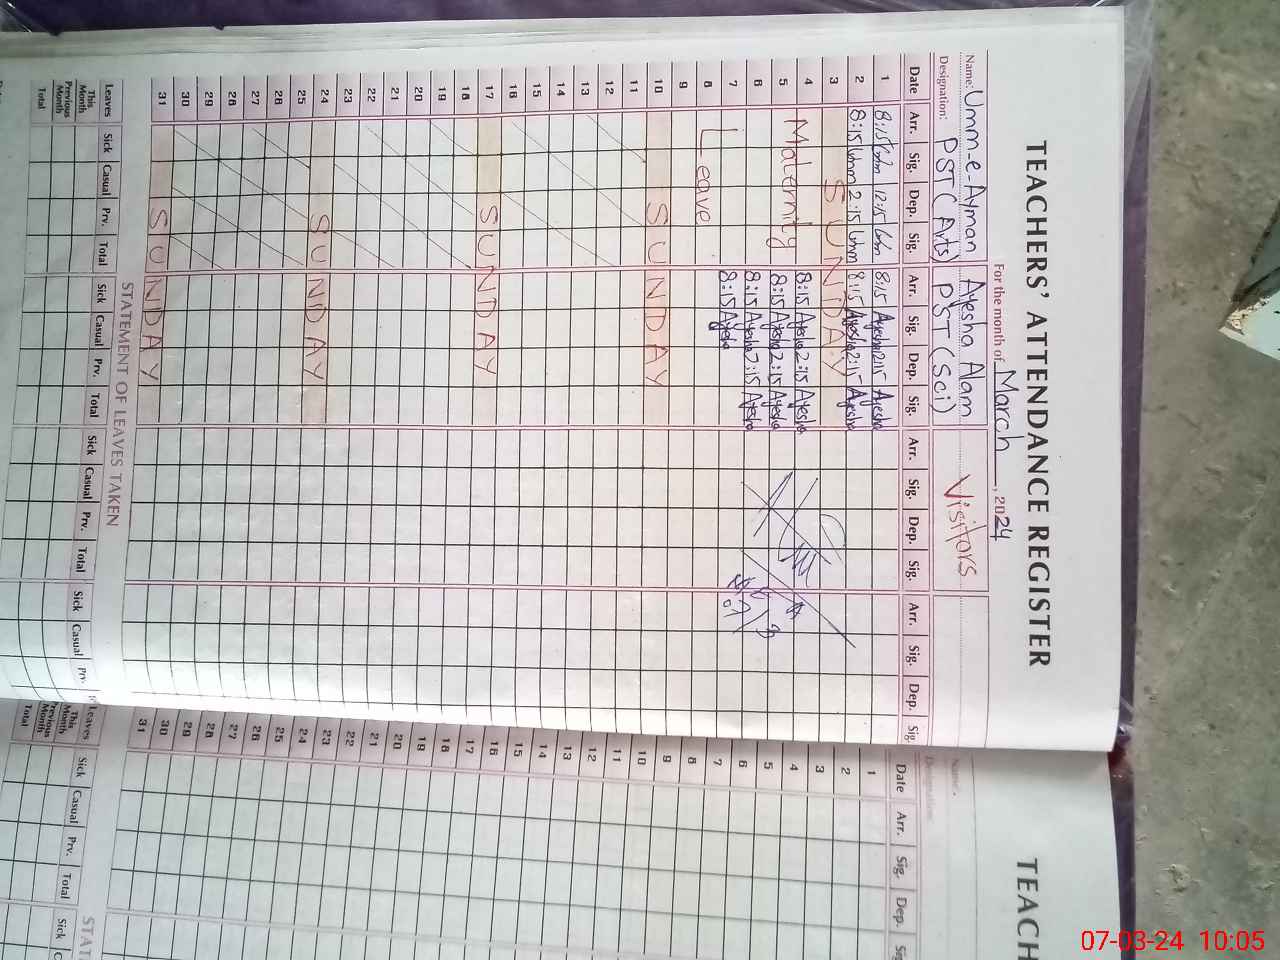 TEACHERS' ATTENDANCE REGISTER
For the month of March, 2024
Name: Umm-e-Ayman Ayesha Alam Visitors
Designation: PST (Arts) PST (Sci)
Date Arr. Sig. Dep. Sig. Arr. Sig. Dep. Sig. Arr. Sig. Dep. Sig. Arr. Sig. Dep. Sig.
1 8:15 12:15 8:15 Ayesha 12:15 Ayesha
2 8:15 2:15 8:15 Ayesha 2:15 Ayesha
3 SUNDAY
4 Maternity 8:15 Ayesha 2:15 Ayesha
5 8:15 Ayesha 2:15 Ayesha
6 8:15 Ayesha 2:15 Ayesha
7 8:15 Ayesha
8 Leave
9
10 SUNDAY
11
12
13
14
15
16
17 SUNDAY
18
19
20
21
22
23
24 SUNDAY
25
26
27
28
29
30
31 SUNDAY
STATEMENT OF LEAVES TAKEN
Leaves Sick Casual Prv. Total Sick Casual Prv. Total Sick Casual Prv. Total Sick Casual Prv.
This Month
Previous Month
Total
TEACH
Name:
Designation:
Date Arr. Sig. Dep. Sig.
1
2
3
4
5
6
7
8
9
10
11
12
13
14
15
16
17
18
19
20
21
22
23
24
25
26
27
28
29
30
31
STAT
Leaves Sick Casual Prv. Total Sick
This Month
Previous Month
Total
07-03-24 10:05